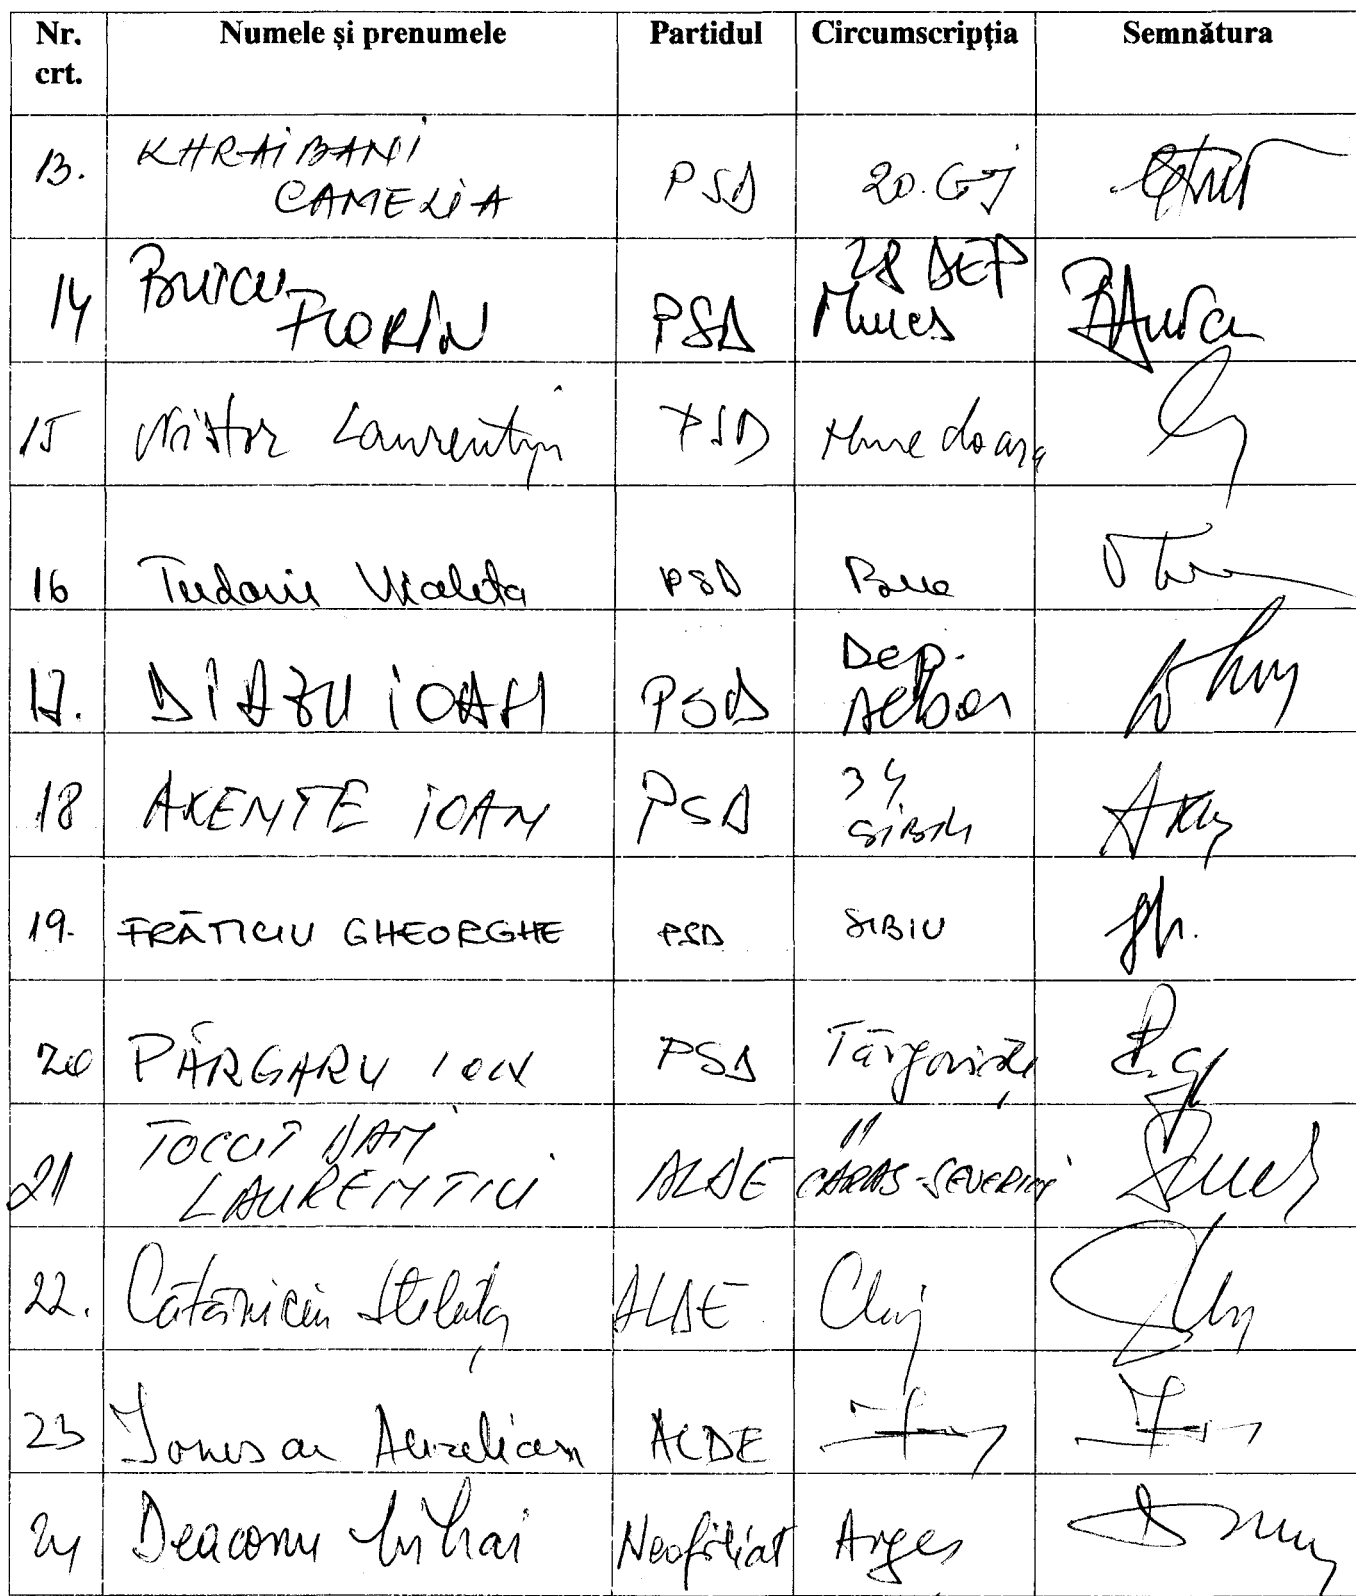 Nr. crt. Numele și prenumele Partidul Circumscripția Semnătura
13. KHRAIBANI CAMELIA PSD 20.GJ
14 Buicu FLORIN PSD 28 DEP Mures
15 Nistor Laurentiu PSD Hunedoara
16 Tudorie Violeta PSD
17. DIRZU IOAN PSD Dep. Alba
18 AXENTE IOAN PSD 34 SIBIU
19. FRĂTICIU GHEORGHE PSD SIBIU
20 PÂRGARU ION PSD Târgoviște
21 TOCUT DAN LAURENTIU ALDE 11 CARAS-SEVERIN
22. Cătăniciu Steluța ALDE Cluj
23 Ionescu Aurelian ALDE
24 Deaconu Mihai Neafiliat Argeș